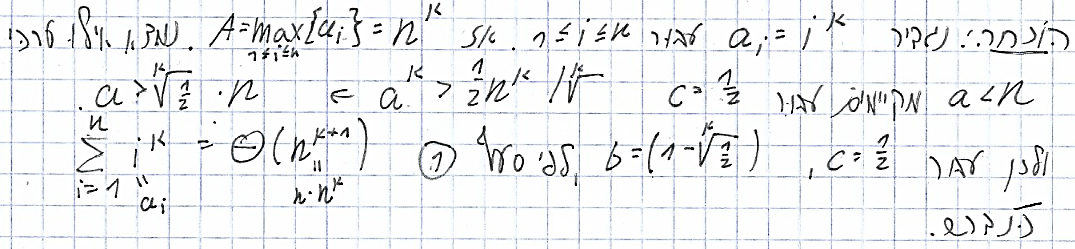 הוכחה: נגדיר a_i = i^k עבור 1≤i≤n. אז A = max_{1≤i≤n}{a_i} = n^k. נמצא אילו ערכי
a<n מקיימים עבור c = 1/2 a^k > 1/2 n^k /ᵏ√ ⇐ a > ᵏ√(1/2) · n.
ולכן עבור c = 1/2, b = (1 - ᵏ√(1/2)), לפי סעיף ① Σ_{i=1}^{n} i^k = Θ(n^{k+1})
a_i n·n^k
הנדרש.